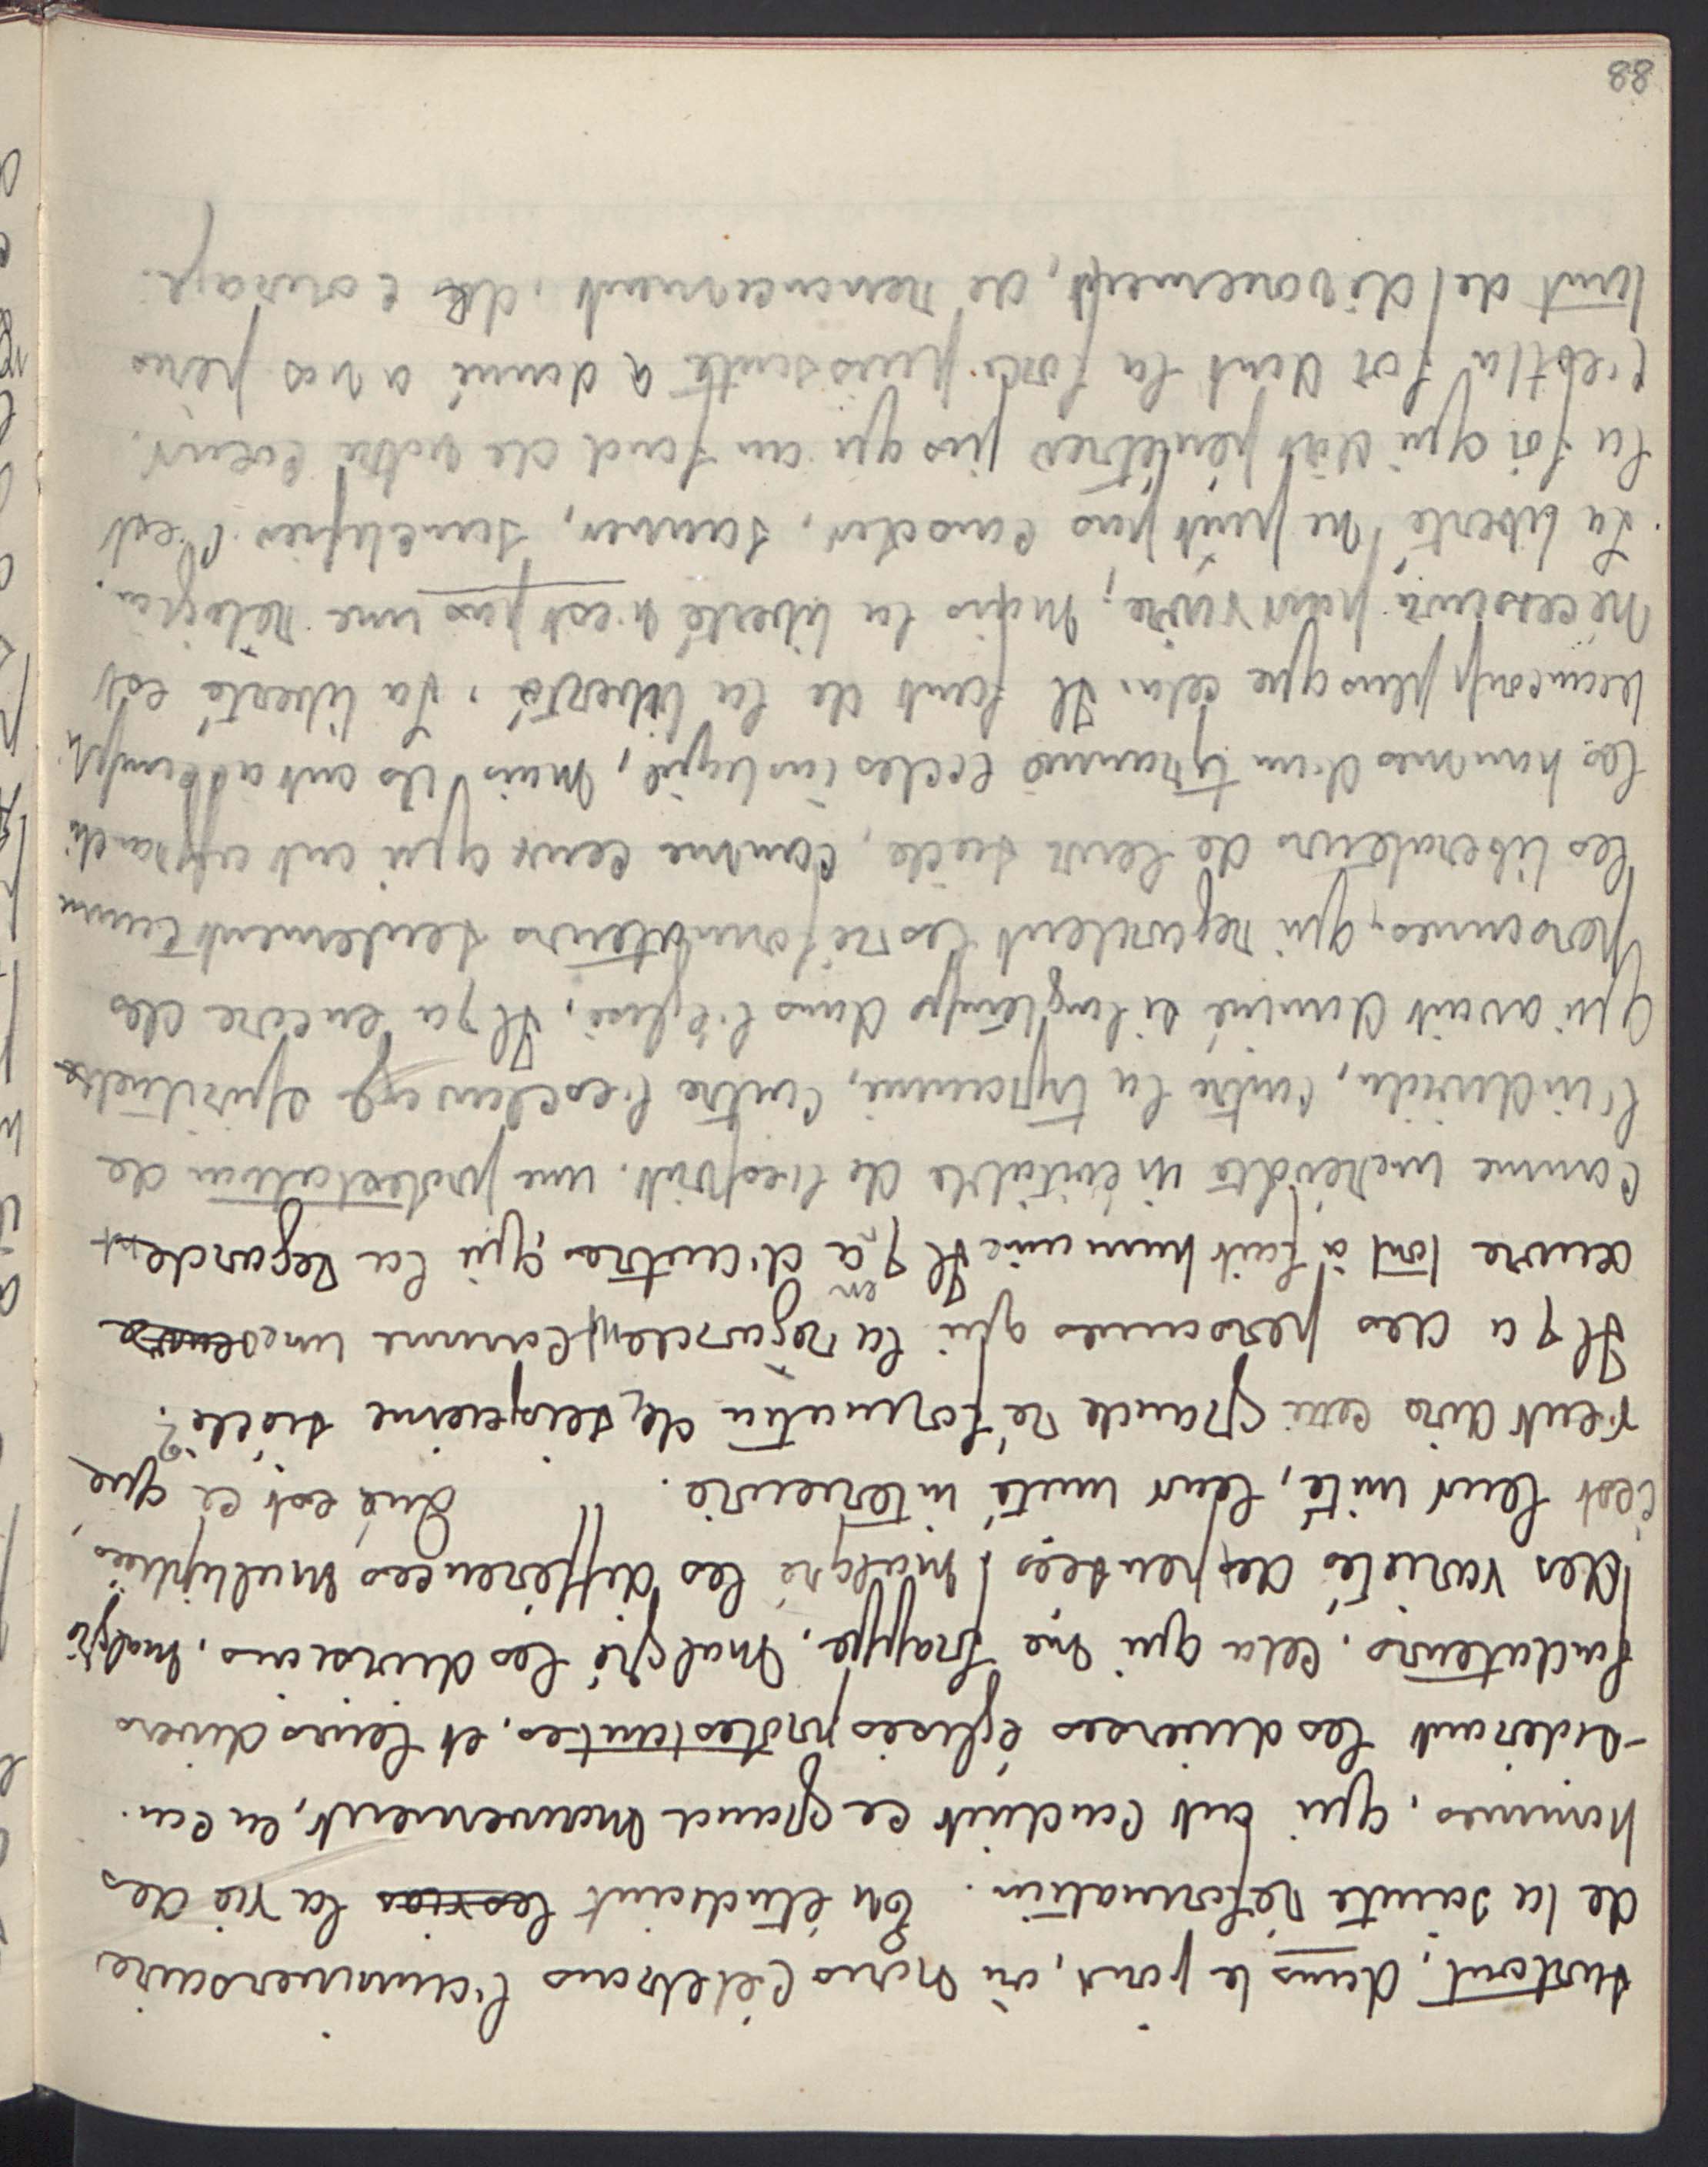 surtout, dans le jour, où nous célébrons l'anniversaire
de la sainte réformation. En étudiant les vies la vie des
hommes, qui ont conduit ce grand mouvement, en con-
-siderant les diverses églises protestantes, et leurs divers
fondateurs, cela qui me frappe, malgré les divisions, malgré
des variétés des pensées, malgré les différences multipliées,
c'est leur unité, leur unité interieure. // Que est ce que
veut dire cette grande réformation de seizieme siècle?
Il y a des personnes qui la regardent comme une œuvre
œuvre tout à fait humaine Il y en a d'autres, qui la regardent
comme une révolte inévitable de l'esprit, une protestation de
l'individu, contre la tyrannie, contre l'esclavage spirituelle
qui avait dominé si longtemps dans l'église, Il y a encore des
personnes, qui regardent les réformateurs seulement comme
les liberateurs de leur siècle, comme ceux qui ont affranchi
les hommes d'un tyrannie ecclesiastique, mais ils ont accompli
beaucoup plus que cela. Il faut de la liberté, La liberté est
nécessaire pour vivre; mais la liberté n'est pas une religion.
La liberté ne peut pas consoler, sauver, sanctifier C'est
la foi qui doit pénétrer jusqu'au fond de notre coeur.
C'est la foi dont la force puissante a donné a nos peres
tant de dévouement, de renoncement, de courage.
88